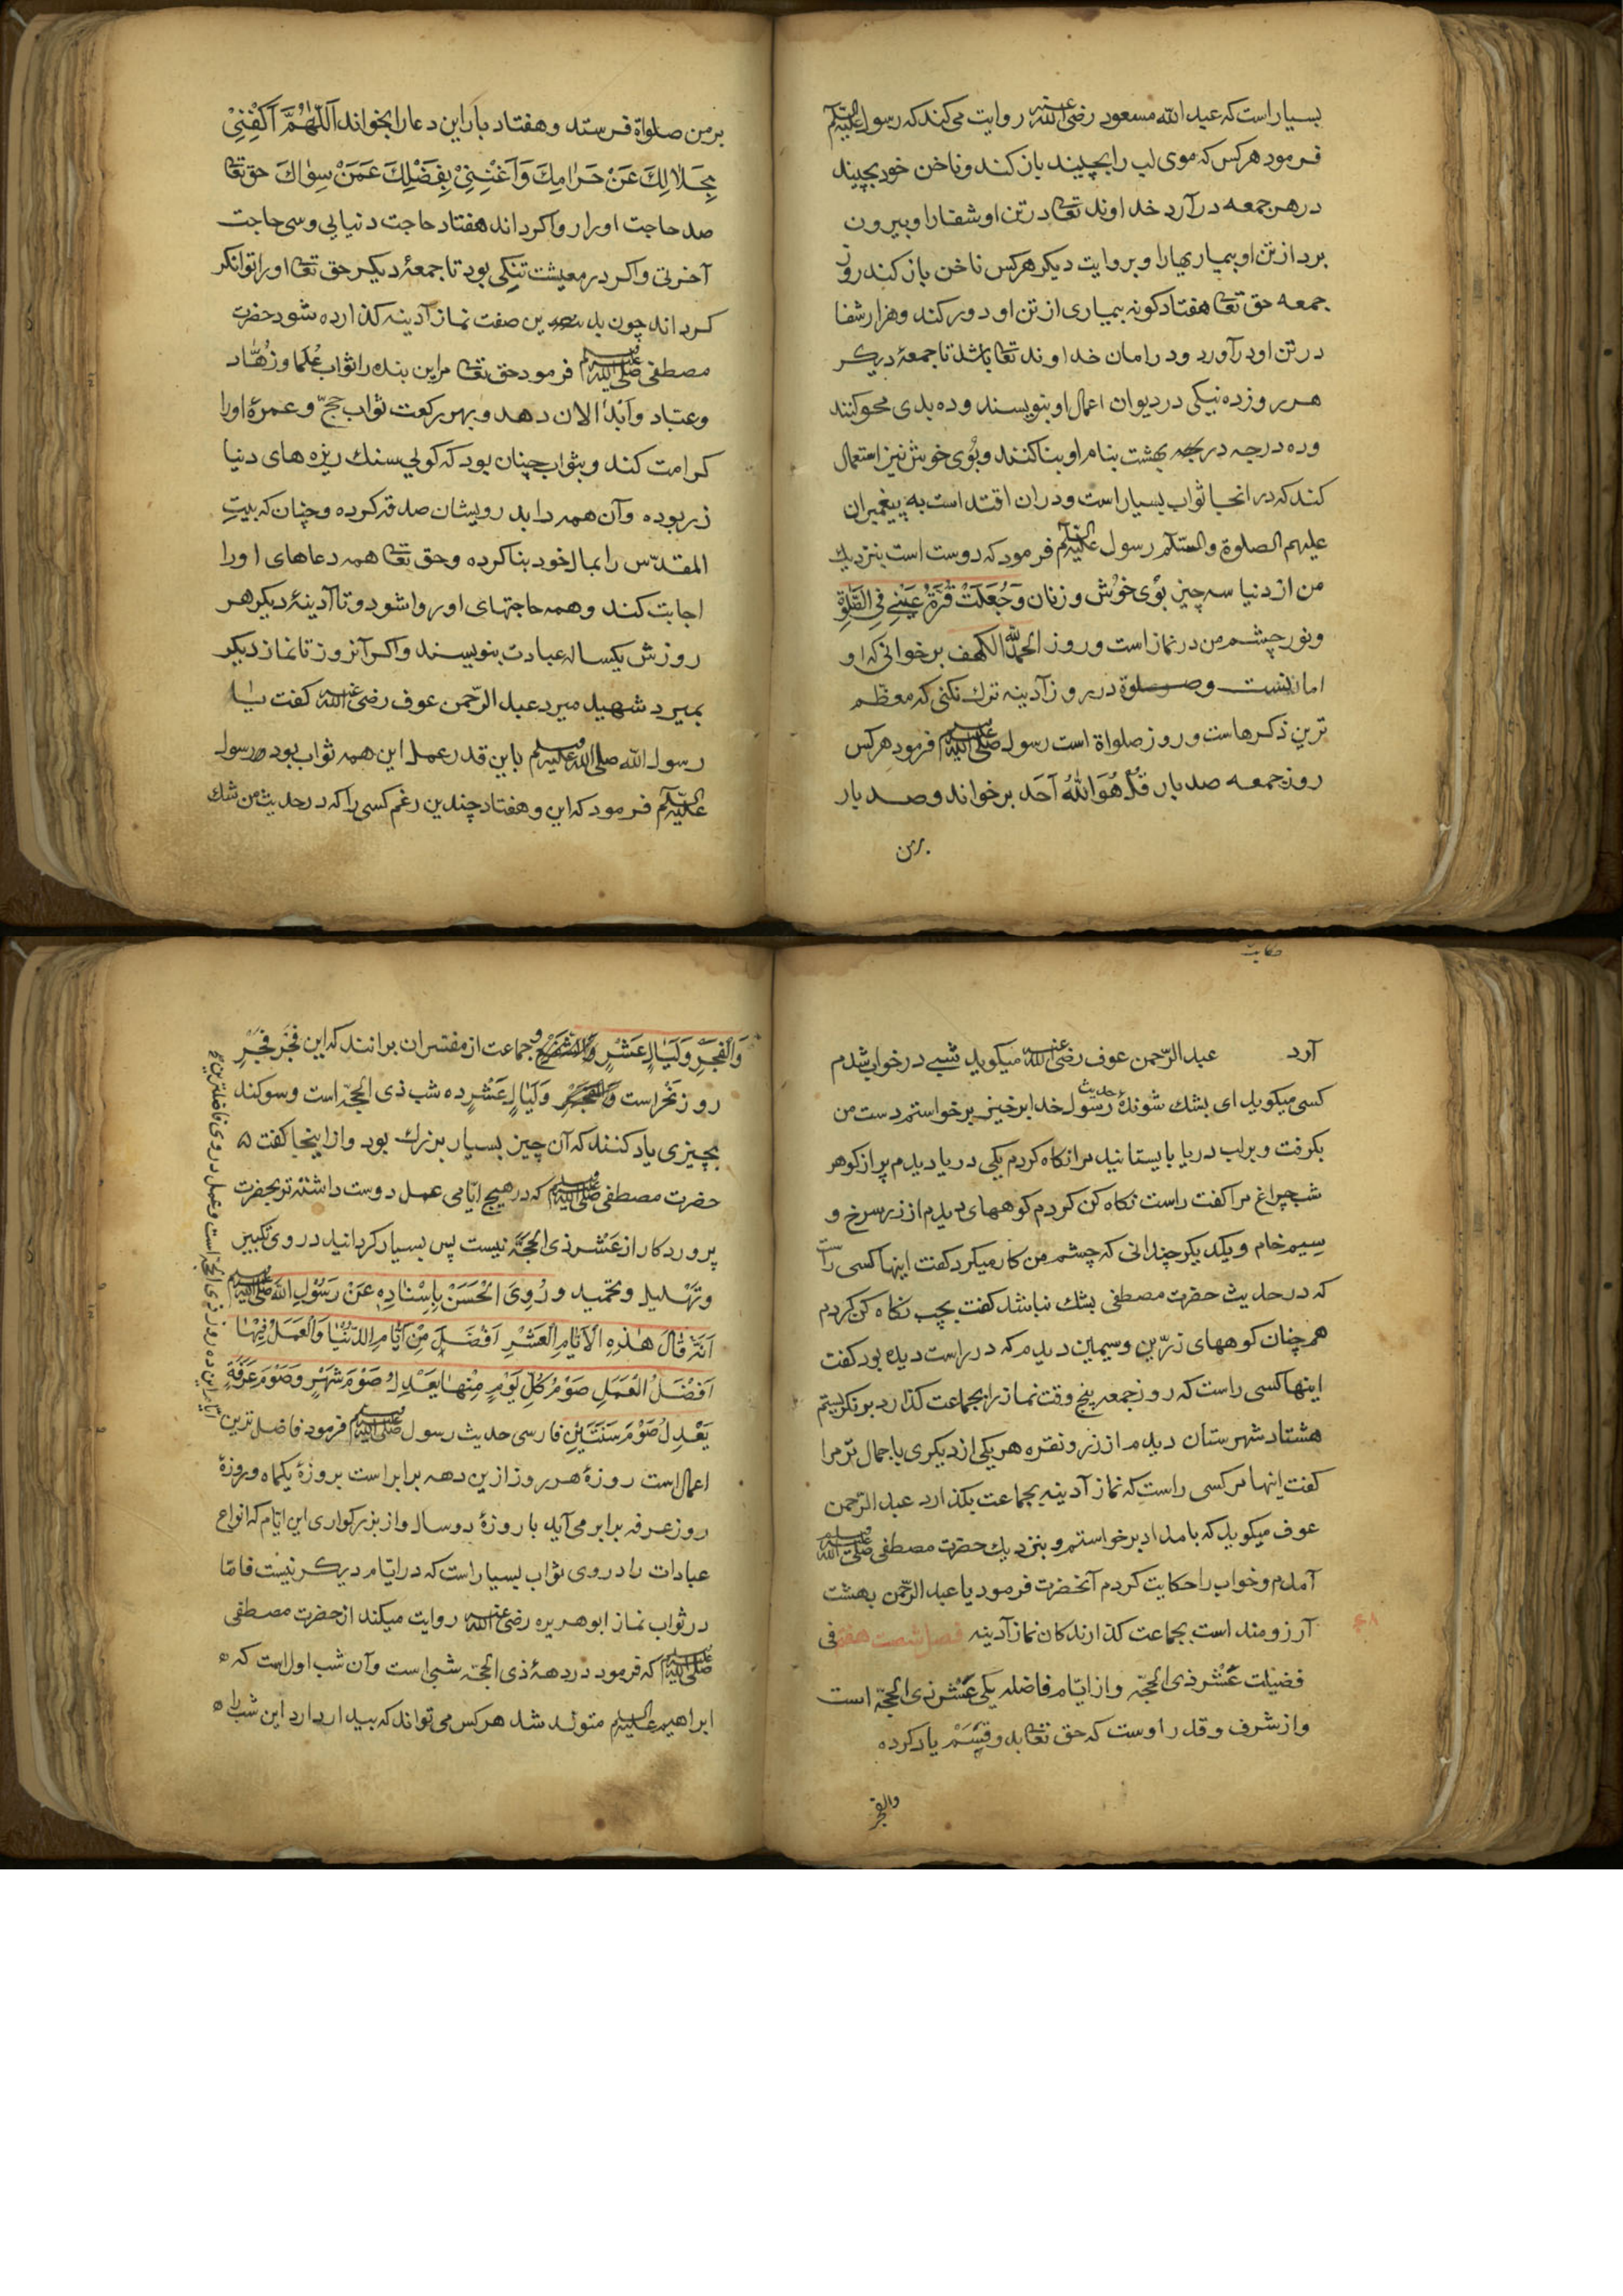 بسیار است که عبد الله مسعود رضی الله عنه روایت می کند که رسول علیه السلم
فرمود هر کس که موی لب را بچیند باز کند و ناخن خود بچیند
در هر جمعه در آرد خداوند تعالی در تن او شفا را و بیرون
برد از تن او بیماریها را و بروایت دیکر هر کس ناخن باز کند روز
جمعه حق تعالی هفتاد کونه بیماری از تن او دور کند و هزار شفا
در تن او در آورد و در امان خداوند تعالی باشد تا جمعهٔ دیکر
هر روز ده نیکی در دیوان اعمال او بنویسند و ده بدی محو کنند
و ده درجه در بهشت بنام او بنا کنند و بوی خوش نیز استعمال
کند که در انجا ثواب بسیار است و در ان اقتدا است به پیغمبران
علیهم الصلوة والسلم رسول علیه السلم فرمود که دوست است بنزدیك
من از دنیا سه چیز بوی خوش و زنان وَجُعِلَتْ قُرَّةُ عَیْنِی فِی الصَّلٰوةِ
و نور چشم من در نماز است و روز الحمد لله الکهف بر خوانی که او
امانیست و صلوة در روز آدینه ترك نکنی که معظم
ترین ذکرهاست و روز صلواة است رسول صلی الله علیه وسلم فرمود هر کس
روز جمعه صد بار قُلْ هُوَ اللّٰهُ اَحَد بر خواند و صد بار
بر من
بر من صلواة فرستد و هفتاد بار این دعا را بخواند اَللّٰهُمَّ اَکْفِنِیْ
بِحَلَالِكَ عَنْ حَرَامِكَ وَاَغْنِنِیْ بِفَضْلِكَ عَمَنْ سِوَاكَ حق تعالی
صد حاجت او را روا کرداند هفتاد حاجت دنیایی و سی حاجت
آخرتی و اکر در معیشت تنکی بود تا جمعهٔ دیکر حق تعالی او را توانکر
کرداند چون بدین صفت نماز آدینه کذارده شود حضرت
مصطفی صلی الله علیه وسلم فرمود حق تعالی مر این بنده را ثواب عُلما و زُهّاد
و عبّاد و اَبْدالان دهد و بهر رکعت ثواب حجّ و عمرهٔ او را
کرامت کند و بثواب چنان بود که کویی سنك ریزه های دنیا
زر بوده و آن همه را بدرویشان صدقه کرده و چنان که بیتِ
المقدّس را بمال خود بنا کرده و حق تعالی همه دعاهای او را
اجابت کند و همه حاجتهای او روا شود و تا آدینهٔ دیکر هر
روزش یکساله عبادت بنویسند و اکر آنروز تا نماز دیکر
بمیرد شهید میرد عبد الرّحمن عوف رضی الله عنه کفت یا
رسول الله صلی الله علیه وسلم باین قدر عمل این همه ثواب بود رسول
علیه السلم فرمود که این و هفتاد چندین رغم کسی را که در حدیث من شك
حکایت
آرد عبد الرّحمن عوف رضی الله عنه میکوید شبی در خواب شدم
کسی میکوید ای بشك شوندهٔ حدیث رسول خدا بر خیز بر خواستم دست من
بکرفت و بر لب دریا بایستانید مرا نکاه کردم یکی دریا دیدم پر از کوهر
شب چراغ مرا کفت راست نکاه کن کردم کوههای دیدم از زر سرخ و
سیم خام و یکدیکر چندانی که چشم من کار میکرد کفت اینها کسی راست
که در حدیث حضرت مصطفی بشك نباشد کفت بچپ نکاه کن کردم
همچنان کوههای زرّین و سیمین دیدم که در راست دیده بود کفت
اینها کسی راست که روز جمعه پنج وقت نماز را بجماعت کذارد بر نکریستم
هشتاد شهرستان دیدم از زر و نقره هر یکی از دیکری با جمال تر مرا
کفت اینها مر کسی راست که نماز آدینه بجماعت بکذارد عبد الرّحمن
عوف میکوید که بامداد بر خواستم و بنزدیك حضرت مصطفی صلی الله علیه وسلم
آمدم و خواب را حکایت کردم آنحضرت فرمود یا عبد الرّحمن بهشت
آرزومند است بجماعت کذارندکان نماز آدینه فصل شصت هفتم فی
فضیلت عَشْر ذی الحجّه و از ایّام فاضله یکی عَشْر ذی الحجّه است
و از شرف و قدر اوست که حق تعالی بدو قَسَمْ یاد کرده
والفجر
وَالْفَجْرِ وَلَیَالٍ عَشْرٍ و جماعت از مفسّران برانند که این فَجْر فَجْرِ
روز نحر است وَلَیَالٍ عَشْرٍ ده شب ذی الحجّه است و سوکند
بچیزی یاد کنند که آن چیز بسیار بزرك بود و از اینجا کفت
حضرت مصطفی صلی الله علیه وسلم که در هیچ ایّامی عمل دوست داشته تر بحضرت
پروردکار از عَشْر ذی الحجّه نیست پس بسیار کردانید در وی تکبیر
و تهْلیل و تحمید و رُوِیَ الْحَسَنْ بِاِسْنَادِهِ عَنْ رَسُوْلِ اللهِ صلی الله علیه وسلم
اَنَّهُ قَالَ هٰذِهِ الْاَیَّامِ الْعَشْرِ اَفْضَلَ مِنْ اَیَّامِ الدُّنْیَا وَالْعَمَلُ فِیْهَا
اَفْضَلُ الْعَمَلِ صَوْمُ کُلِّ یَوْمٍ مِنْهَا یَعْدِلُ صَوْمَ شَهْرٍ وَصَوْمَ عَرَفَةِ
یَعْدِلُ صَوْمَ سَنَتَیْنِ فارسی حدیث رسول صلی الله علیه وسلم فرمود فاضل ترین
ایّام این ده روز ذی الحجّه است و عمل در وی فاضلترین
اعمال است روزهٔ هر روز ازین دهه برابر است بروزهٔ یکماه و روزهٔ
روز عرفه برابر می آید با روزهٔ دو سال و از بزرکواری این ایّام که انواع
عبادات را در وی ثواب بسیار است که در ایّام دیکر نیست فامّا
در ثواب نماز ابو هریره رضی الله عنه روایت میکند از حضرت مصطفی
صلی الله علیه وسلم که فرمود در دههٔ ذی الحجّه شبی است و آن شب اول است که
ابراهیم علیه السلم متولد شد هر کس می تواند که بیدار دارد این شب را